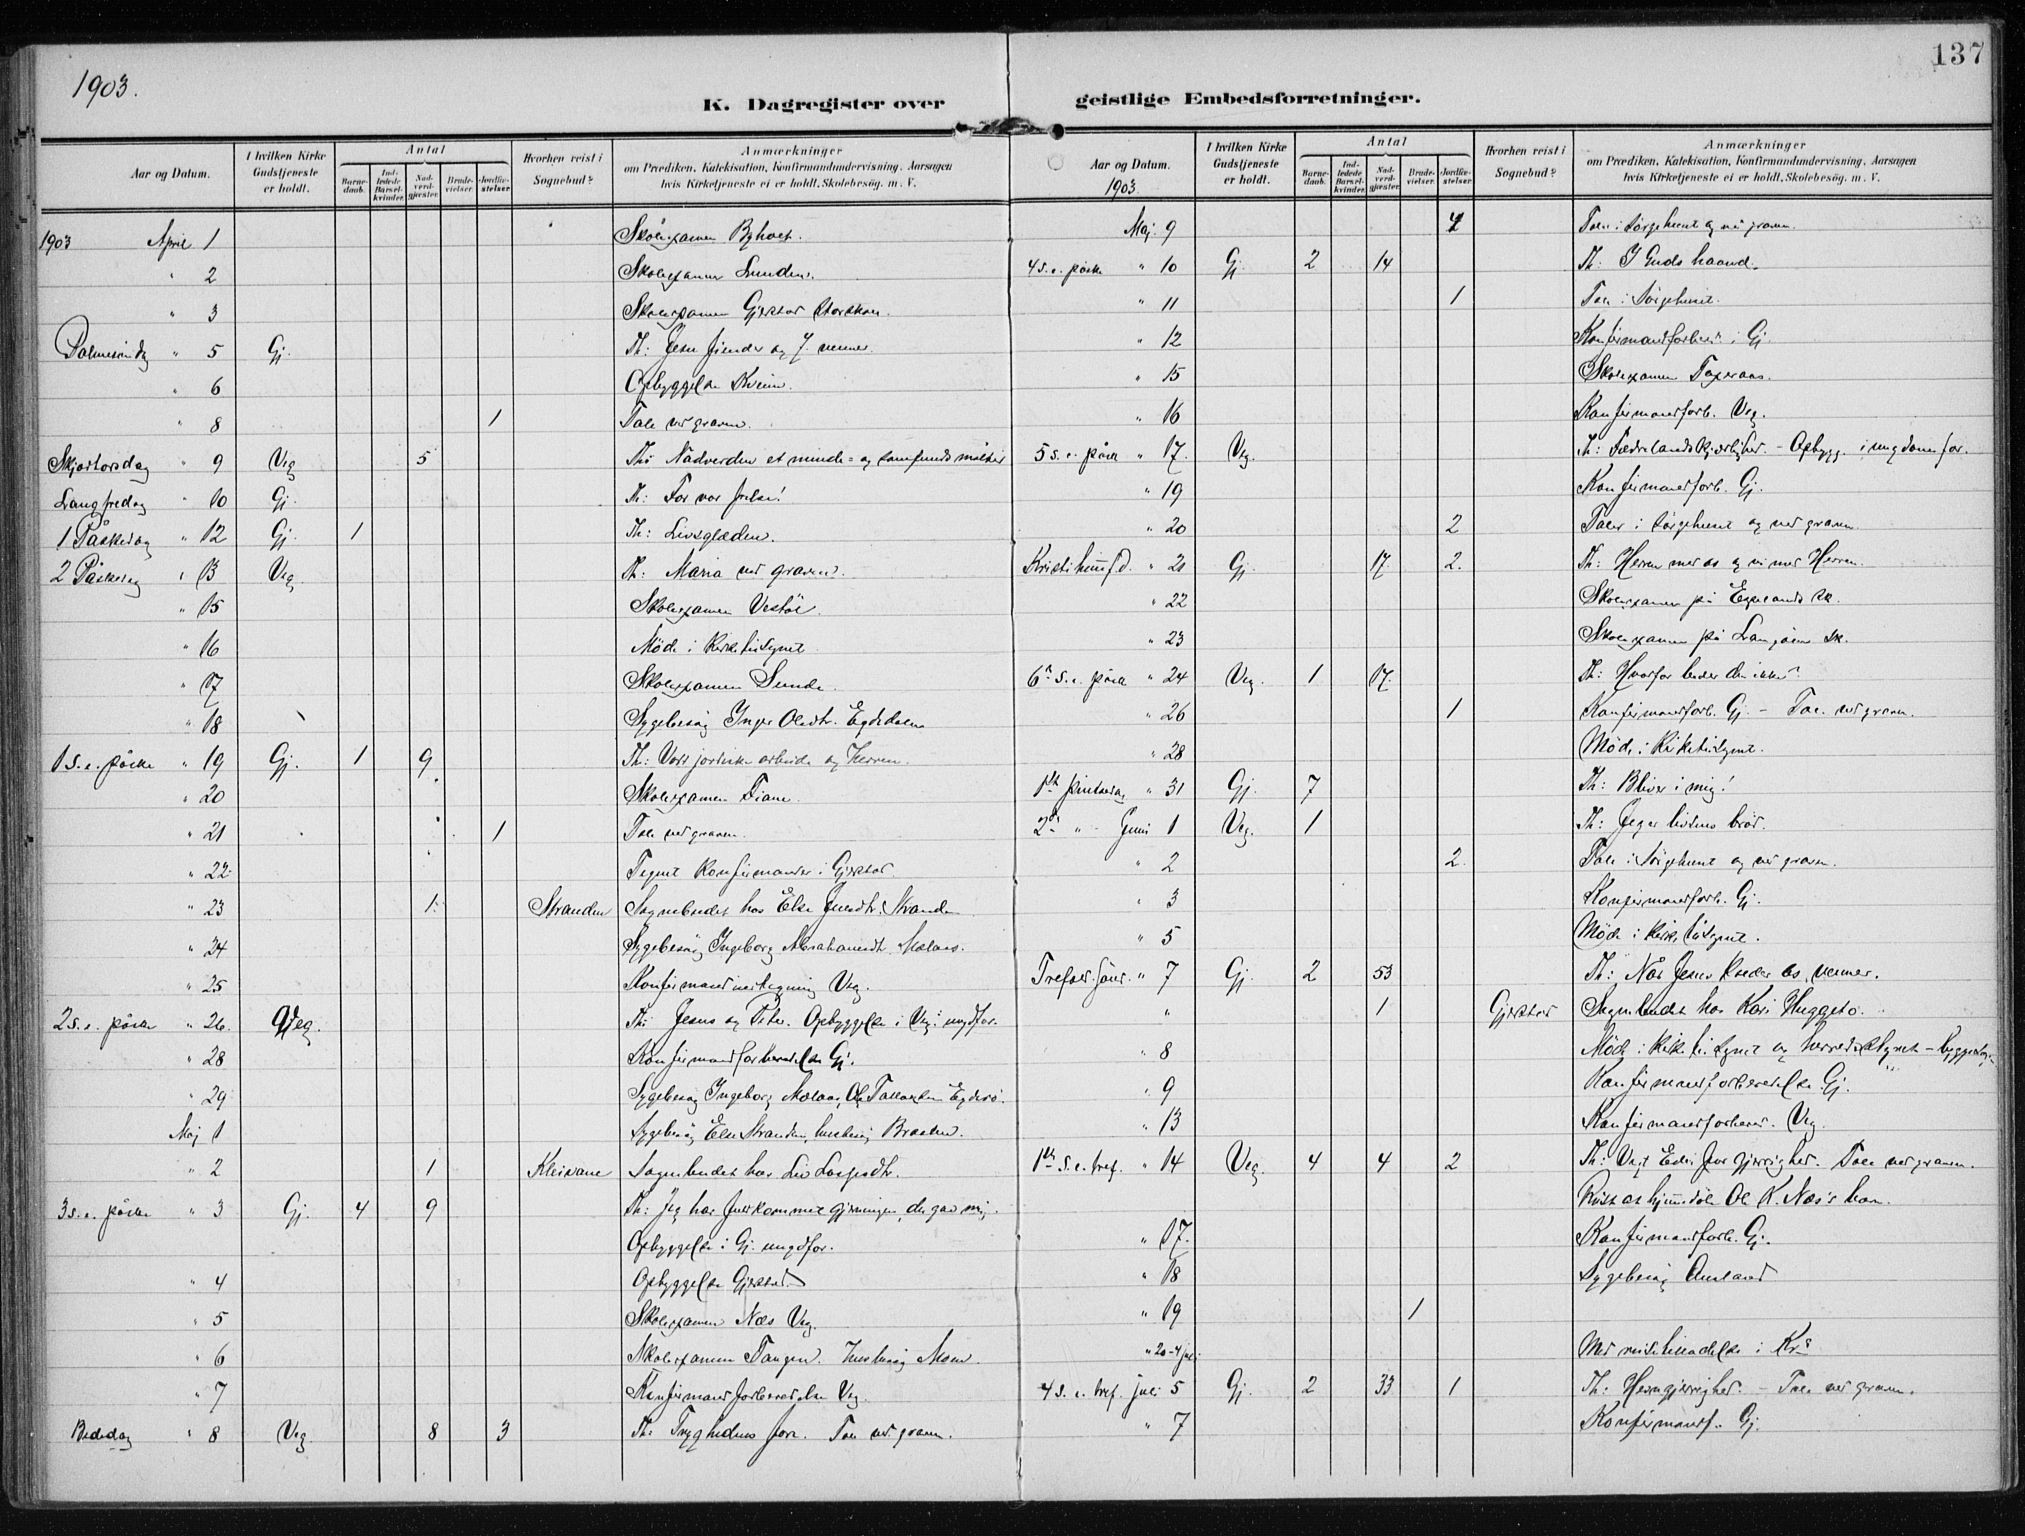 137
1903.
K. Dagregister over geistlige Embedsforretninger.
Aar og Datum. I hvilken Kirke Gudstjeneste er holdt. Antal Barnedaab. Indledede Barselkvinder. Nadverdgjæster. Brudevielser. Jordfæstelser. Hvorhen reist i Sognebud? Anmærkninger om Prædiken, Katekisation, Konfirmandundervisning, Aarsagen hvis Kirketjeneste ei er holdt, Skolebesög. m. V.
1903 April 1 Skolexamen
" 2 Skolexamen Lunden.
" 3 Skolexamen Gjerstad
Palmesøndag " 5 Gj. Th: Jesu fiender og J. venner.
" 6 Opbyggelse
" 8 1 Tale ved graven.
Skjærtorsdag " 9 Veg 5 Th: Nadverden et minde- og samfunds måltid
Langfredag " 10 Gj Th: For vor frelse!
1 Påskedag " 12 Gj. 1 Th: Livsglæden.
2 Påskedag " 13 Veg. Th: Maria ved graven.
" 15 Skolexamen Vestøl.
" 16 Møde i Kirketilsynet
" 17 Skolexamen Sunde.
" 18 Sygebesøg Inger Olsdtr. Egdedalen
1 s. e. påske " 19 Gj. 1 9 Th: Vort jordiske arbeide og Herren.
" 20 Skolexamen Fiane.
" 21 1 Tale ved graven.
" 22 Tegnet Konfirmander i Gjerstad
" 23 1. Stranden Sognebudet hos Else Stranden
" 24 Sygebesøg Ingeborg Abrahamsdtr.
" 25 Konfirmand Veg.
2 s. e. påske " 26. Veg. Th: Jesus og Peter. Opbyggelse i Veg. ungdfor.
" 28 Konfirmandforberedelse Gj.
" 29 Sygebesøg Ingeborg
Maj 1 Sygebesøg Else Stranden, husbesøg
" 2 1 Sognebudet hos Liv
3 s. e. påske " 3 Gj. 4 9 Th: Jeg har fuldkommet gjerningen, du gav mig.
Opbyggelse i Gj. ungdfor.
" 4 Opbyggelse Gjerstad
" 5 Skolexamen Næs Veg.
" 6 Skolexamen Tangen. Husbesøg Moen.
" 7 Konfirmandforberedelse Veg.
Bededag " 8 Veg. 8 3 Th: Tryghedens fare. Tale ved graven.
Aar og Datum. I hvilken Kirke Gudstjeneste er holdt. Antal Barnedaab. Indledede Barselkvinder. Nadverdgjæster. Brudevielser. Jordfæstelser. Hvorhen reist i Sognebud? Anmærkninger om Prædiken, Katekisation, Konfirmandundervisning, Aarsagen hvis Kirketjeneste ei er holdt, Skolebesög. m. V.
1903
Maj 9 Tale i Sørgehuset og ved graven.
4 s. e. påske " 10 Gj. 2 14 Th: I Guds haand.
" 11 1 Tale i Sørgehuset.
" 12 Konfirmandforbered. i Gj.
" 15 Skolexamen
" 16 Konfirmandforb. Veg.
5 s. e. påske " 17. Veg. Th: Fædrelandskjærlighed. - Opbygg. i ungdomsfor.
" 19 Konfirmandforb. Gj.
" 20 2 Taler i Sørgehuset og ved graven
Kristi himfd. " 21 Gj 17. 2. Th: Herren med os og vi med Herren.
" 22 Skolexamen på
" 23 Skolexamen på
6te s. e. påske " 24 Veg. 1 17. Th: Hvorfor beder du ikke?
" 26 1 Konfirmandforb. Gj. - Tale ved graven.
" 28 Møde i Kirketilsynet.
1ste pintsedag " 31 Gj. 7 Th: Bliver i mig!
2den " - Juni 1 Veg. 1 Th: Jeg er livsens brød.
" 2 2. Tale i Sørgehuset og ved graven.
" 3 Konfirmandforb. Gj.
" 5 Møde i Kirketilsynet.
Trefold. sønd. " 7 Gj. 2 53 Th: Når Jesus kalder os venner.
" 1 Gjerstad Sognebudet hos Kari
" 8 Møde i Kirketilsynet og herredstyret
" 9 Konfirmandforberedelse Gj.
" 13 Konfirmandforbered. Veg.
1ste s. e. tref. " 14 Veg. 4 4 2 Th: Vogt Eder for gjerrighed. Tale ved graven.
" 17. Konfirmandforb. Gj.
" 18 Sygebesøg
" 19 1
" 20-4 juli
4 s. e. tref. juli 5 Gj. 2 33 1 Th: Hevngjerrighed. - Tale ved graven.
" 7 Konfirmandf. Gj.